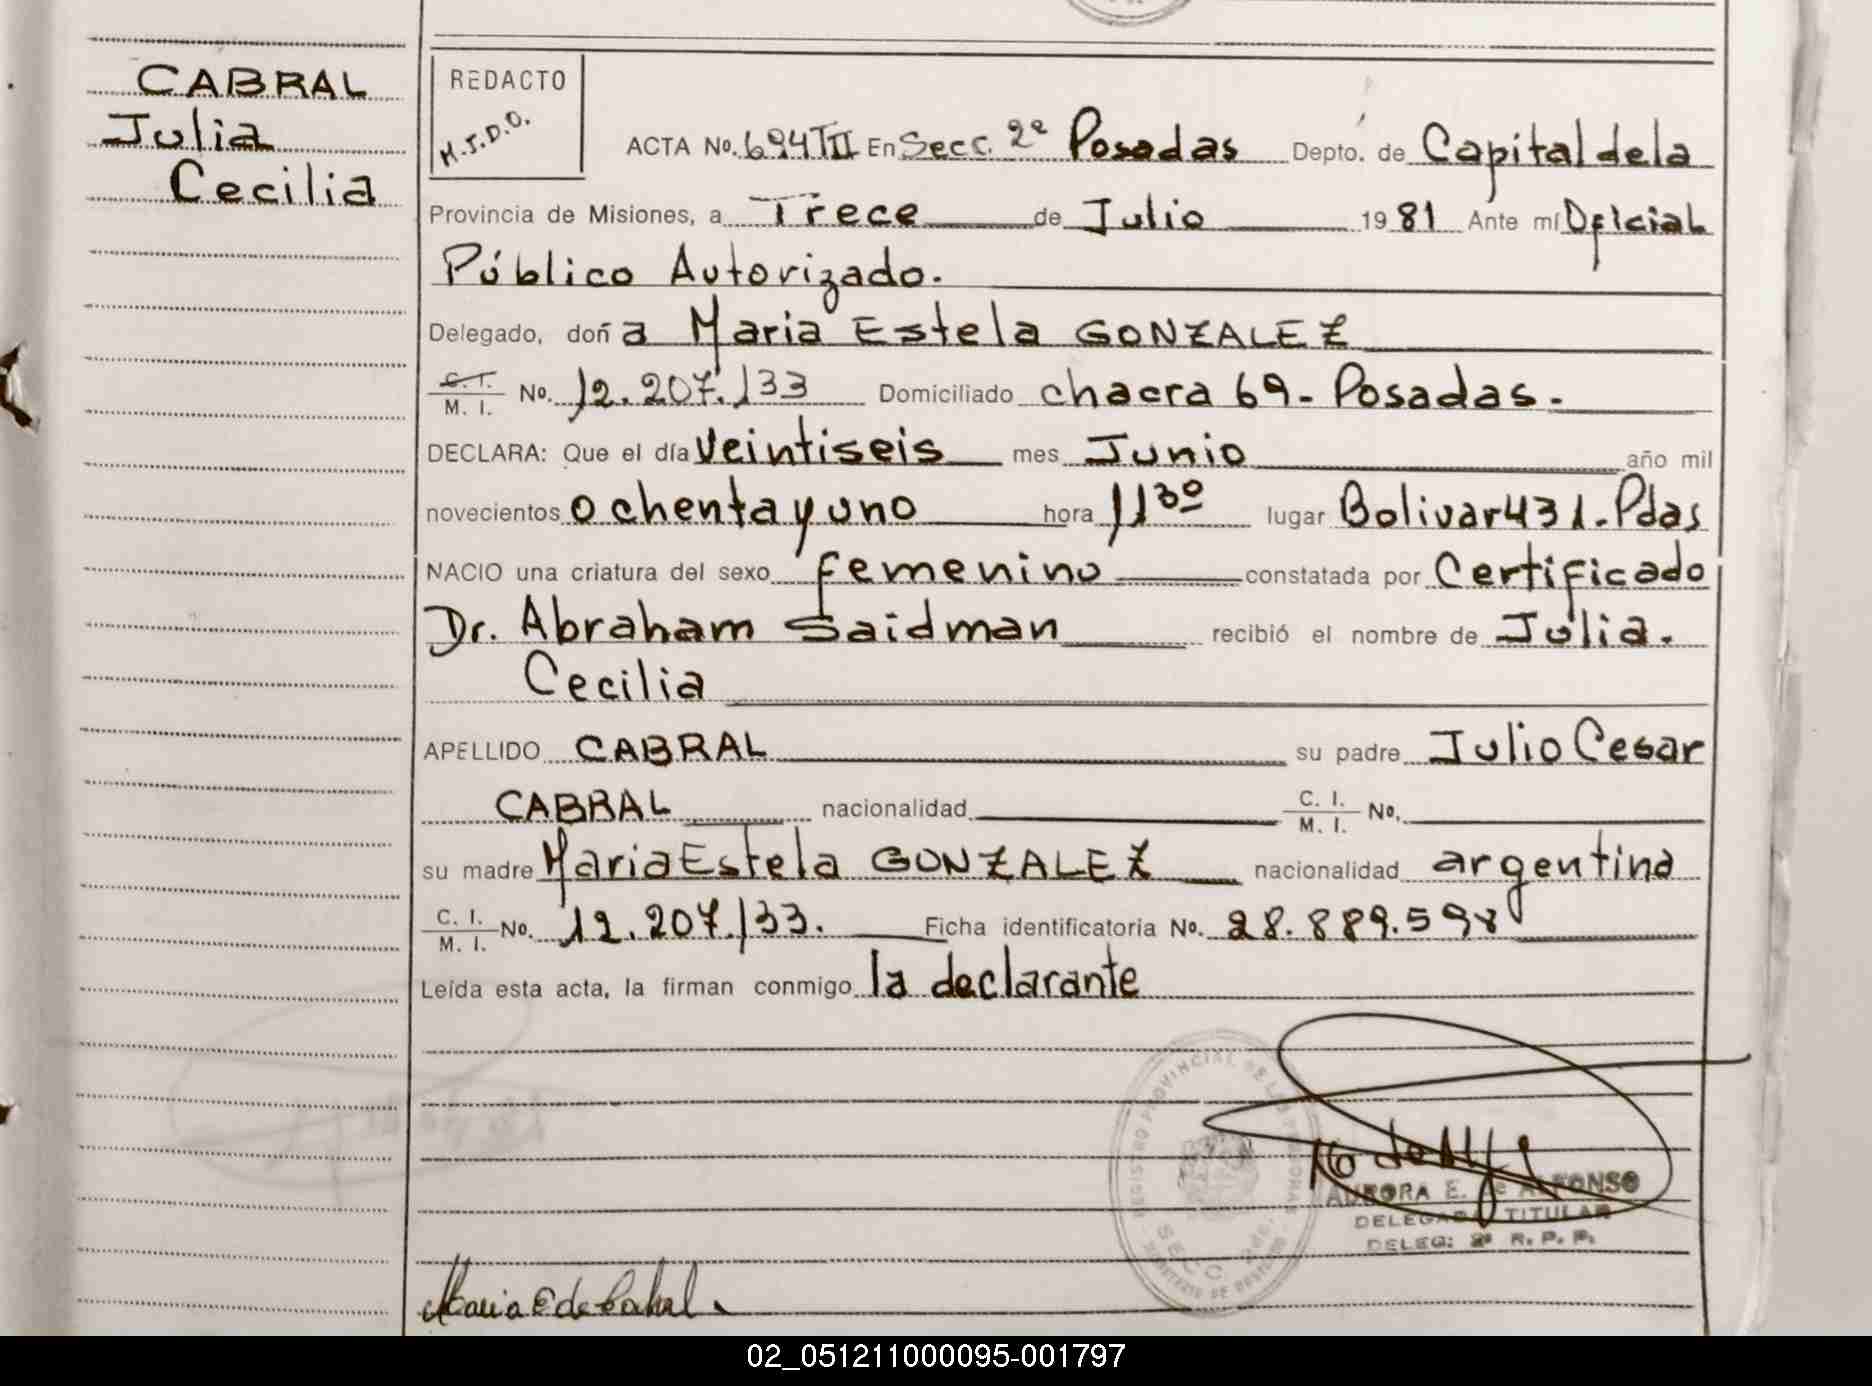 CABRAL
Julia
Cecilia
REDACTO
M.J.D.O.
ACTA No. 694 TII En Secc. 2ª Posadas Depto. de Capital de la
Provincia de Misiones, a Trece de Julio 1981 Ante mí Oficial
Público Autorizado.
Delegado, doña Maria Estela GONZALEZ
C. I.
M. I. No. 12.207.133 Domiciliado chacra 69 - Posadas.-
DECLARA: Que el día Veintiseis mes Junio año mil
novecientos ochenta y uno hora 11³⁰ lugar Bolivar 431. Pdas
NACIO una criatura del sexo femenino constatada por Certificado
Dr. Abraham Saidman recibió el nombre de Julia.
Cecilia
APELLIDO CABRAL su padre Julio Cesar
CABRAL nacionalidad C. I.
M. I. No.
su madre Maria Estela GONZALEZ nacionalidad argentina
C. I.
M. I. No. 12.207.133. Ficha identificatoria No. 28.889.598
Leída esta acta, la firman conmigo la declarante
REGISTRO PROVINCIAL DE LAS PERSONAS
SECC. 2da.
AURORA E. de ALFONSO
DELEGADA TITULAR
DELEG: 2ª R. P. P.
Maria E de Cabral.
02_051211000095-001797